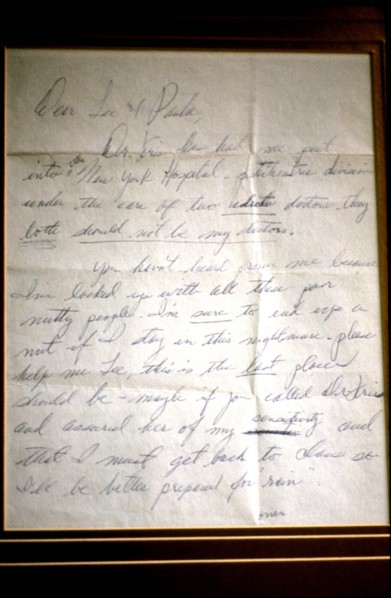 Dear Lee & Paula,
Dr. Kris has had me put
into the New York Hospital - pstikiatric division
under the care of two idiot doctors. they
both should not be my doctors.
You haven't heard from me because
I'm locked up with all these poor
nutty people. I'm sure to end up a
nut if I stay in this nightmare. please
help me Lee, this is the last place I
should be - maybe if you called Dr. Kris
and assured her of my sensitivity and
that I must get back to class so
I'll be better prepared for "rain".
over